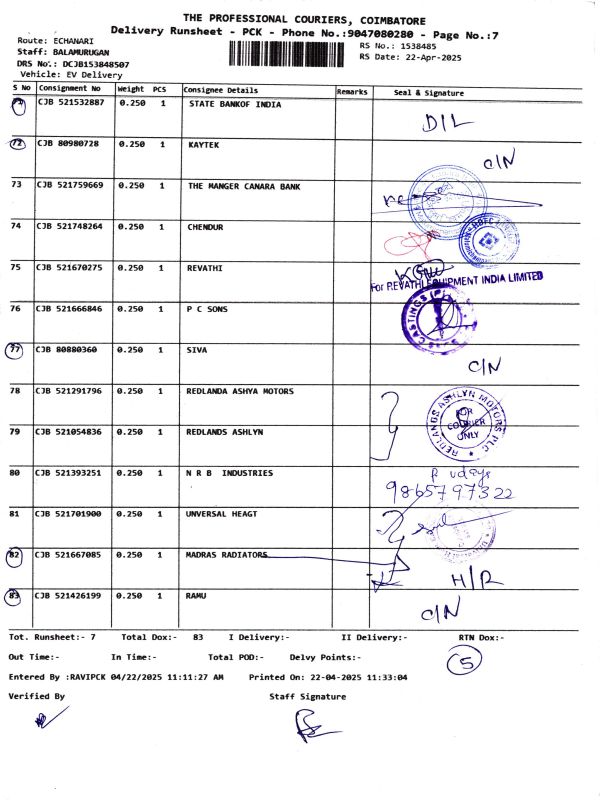 THE PROFESSIONAL COURIERS, COIMBATORE
Delivery Runsheet - PCK - Phone No.:9047080280 - Page No.:7
Route: ECHANARI
RS No.: 1538485
Staff: BALAMURUGAN
RS Date: 22-Apr-2025
DRS No.: DCJB153848507
Vehicle: EV Delivery
S No Consignment No Weight PCS Consignee Details Remarks Seal & Signature
71 CJB 521532887 0.250 1 STATE BANKOF INDIA
D/L
72 CJB 80980728 0.250 1 KAYTEK
C/N
73 CJB 521759669 0.250 1 THE MANGER CANARA BANK
74 CJB 521748264 0.250 1 CHENDUR
75 CJB 521670275 0.250 1 REVATHI
For REVATHI EQUIPMENT INDIA LIMITED
76 CJB 521666846 0.250 1 P C SONS
CASTINGS
77 CJB 80880360 0.250 1 SIVA
C/N
78 CJB 521291796 0.250 1 REDLANDA ASHYA MOTORS
REDLANDS ASHLYN MOTORS PLC
FOR
COURIER
ONLY
79 CJB 521054836 0.250 1 REDLANDS ASHLYN
80 CJB 521393251 0.250 1 N R B INDUSTRIES
9865797322
81 CJB 521701900 0.250 1 UNVERSAL HEAGT
82 CJB 521667085 0.250 1 MADRAS RADIATORS
H/R
83 CJB 521426199 0.250 1 RAMU
C/N
Tot. Runsheet:- 7 Total Dox:- 83 I Delivery:- II Delivery:- RTN Dox:-
5
Out Time:- In Time:- Total POD:- Delvy Points:-
Entered By :RAVIPCK 04/22/2025 11:11:27 AM Printed On: 22-04-2025 11:33:04
Verified By Staff Signature